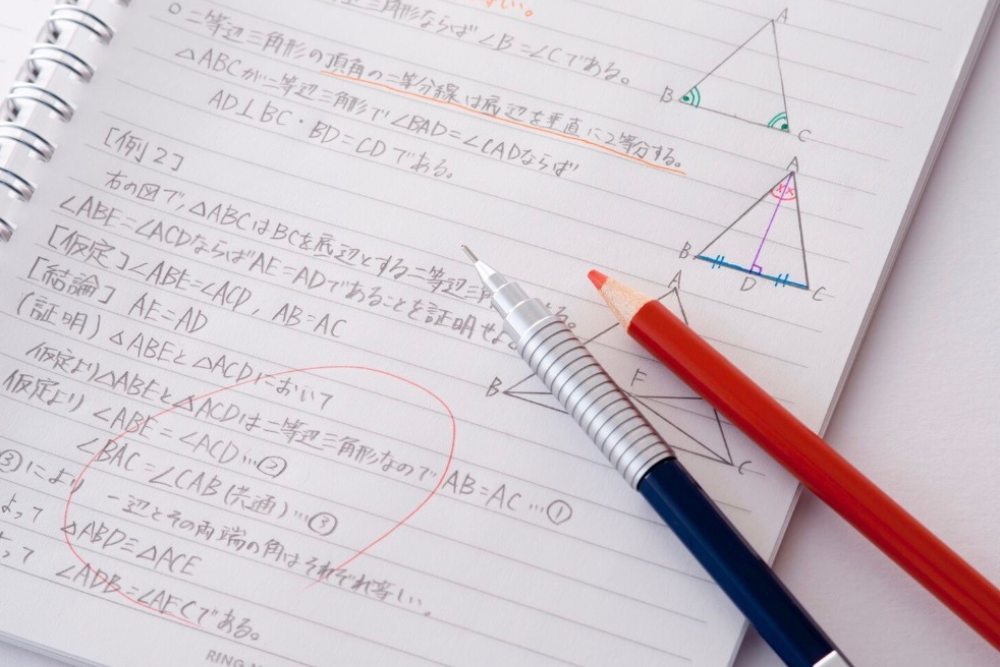 すい。
三角形ならば∠B=∠Cである。
○二等辺三角形の頂角の二等分線は底辺を垂直に2等分する。
△ABCが二等辺三角形で∠BAD=∠CADならば
AD⊥BC・BD=CDである。
[例2]
右の図で,△ABCはBCを底辺とする二等辺三
∠ABE=∠ACDならばAE=ADであることを証明せよ。
[仮定]∠ABE=∠ACD, AB=AC
[結論] AE=AD
(証明) △ABEと△ACDにおいて
仮定より△ABEと△ACDは二等辺三角形なので AB=AC…①
仮定より ∠ABE=∠ACD…②
∠BAC=∠CAB(共通)…③
③により 一辺とその両端の角はそれぞれ等しい。
よって △ABD≡△ACE
って ∠ADB=∠AECである。
A
B
C
A
B
D
C
A
B
F
C
RING N